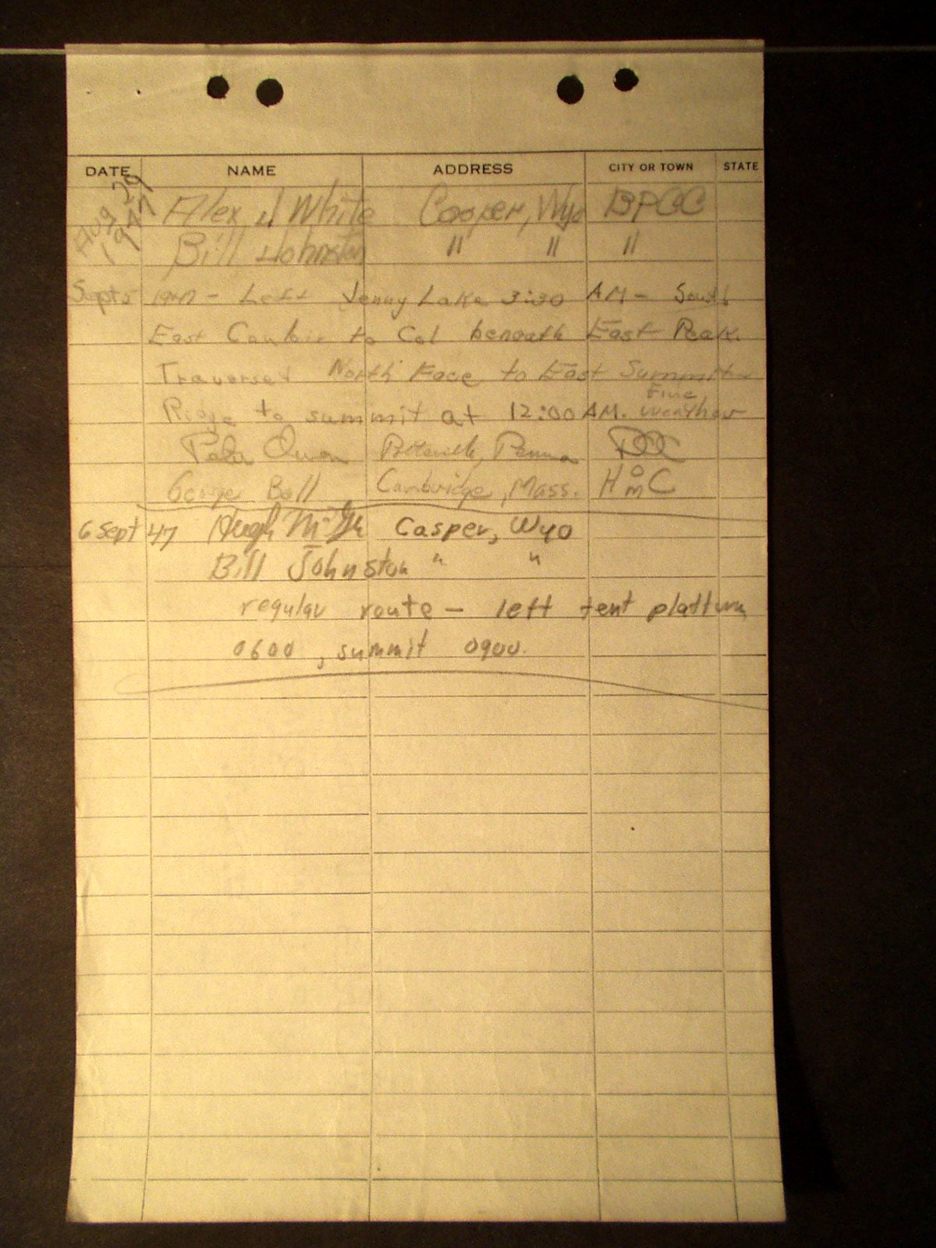 DATE NAME ADDRESS CITY OR TOWN STATE
Aug 29 1947 Alex J White Cooper, Wyo BPCC
Bill Johnston " " "
Sept 5 1947 - Left Jenny Lake 3:30 AM - South
East to Col beneath East Peak.
Traversed North Face to East Summit
Ridge to summit at 12:00 AM. Fine weather
Owen Pottsville, Penna
George Bell Cambridge, Mass. HMC
6 Sept 47 Hugh Casper, Wyo
Bill Johnston " "
regular route - left tent platform
0600, summit 0900.